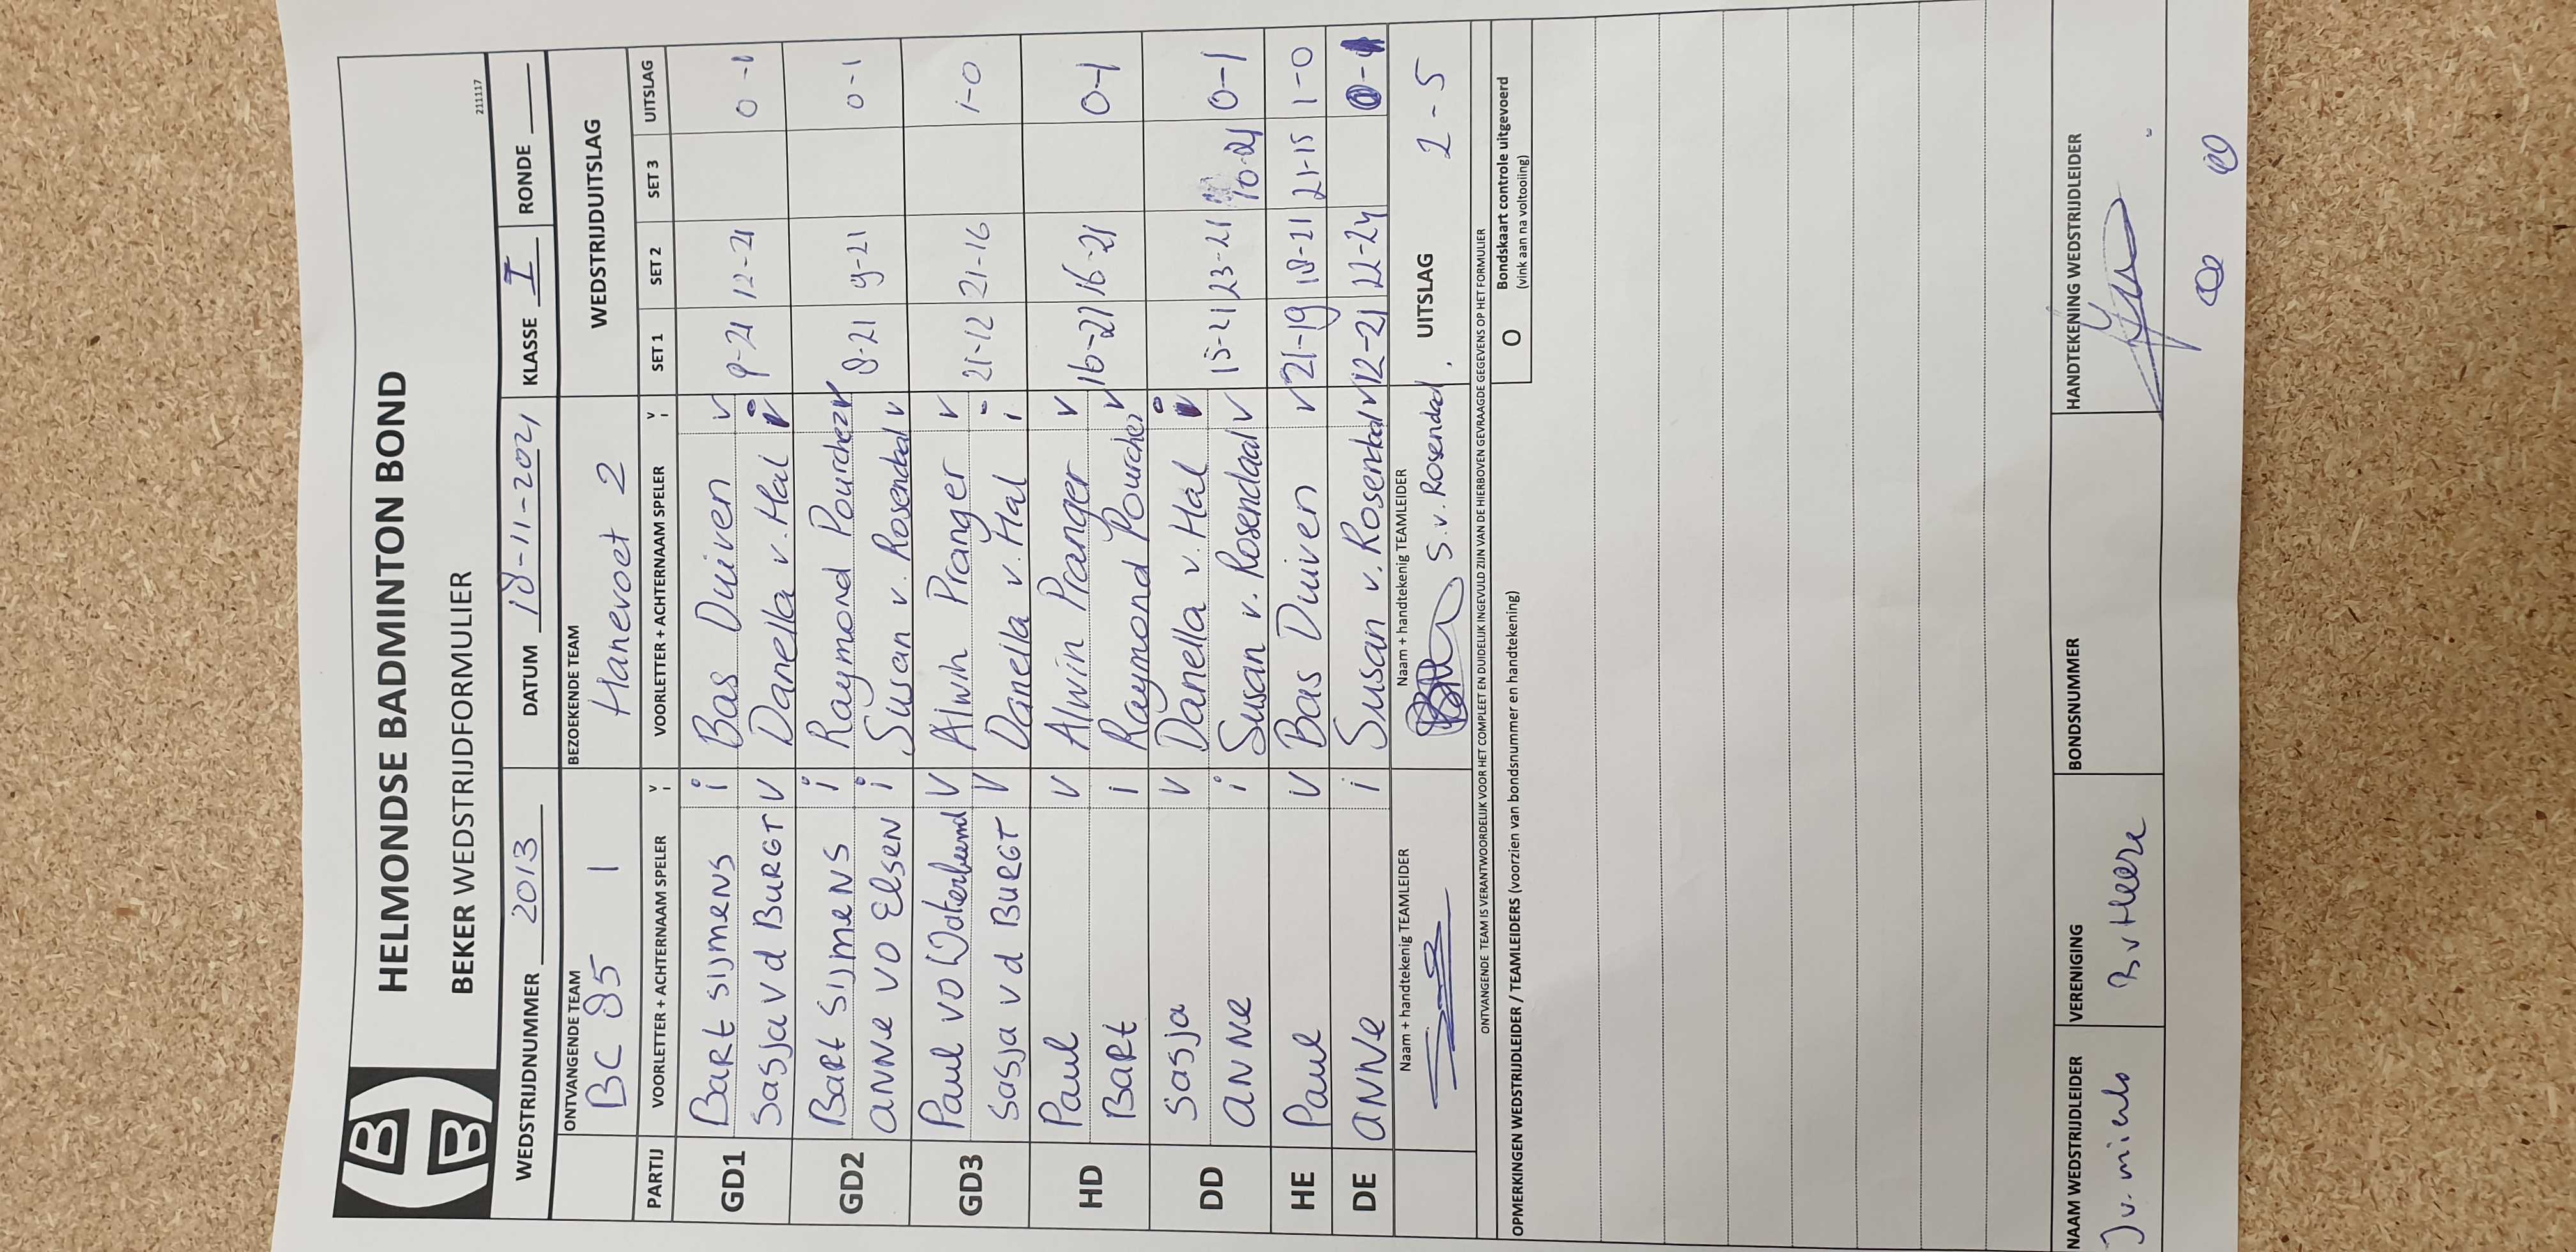 HELMONDSE BADMINTON BOND
BEKER WEDSTRIJDFORMULIER
211117
WEDSTRIJDNUMMER 2013 DATUM 18-11-2021 KLASSE I RONDE
ONTVANGENDE TEAM BEZOEKENDE TEAM WEDSTRIJDUITSLAG
BC 85 1 Hanevoet 2
PARTIJ VOORLETTER + ACHTERNAAM SPELER V I VOORLETTER + ACHTERNAAM SPELER V I SET 1 SET 2 SET 3 UITSLAG
GD1 Bart Sijmens i Bas Duiven v 9-21 12-21 0-1
Sasja v d Burgt v Danella v. Hal
GD2 Bart Sijmens i Raymond Pourchez v 8-21 9-21 0-1
Anne vd Elsen i Susan v. Rosendaal v
GD3 Paul vd v Alwin Pranger v 21-12 21-16 1-0
Sasja v d Burgt v Danella v. Hal i
HD Paul v Alwin Pranger v 16-21 16-21 0-1
Bart i Raymond Pourchez v
DD Sasja v Danella v. Hal 15-21 23-21 10-21 0-1
Anne i Susan v. Rosendaal v
HE Paul v Bas Duiven v 21-19 18-21 21-15 1-0
DE Anne i Susan v. Rosendaal v 12-21 22-24 0-1
Naam + handtekenig TEAMLEIDER Naam + handtekenig TEAMLEIDER UITSLAG 2-5
S. v. Rosendaal
ONTVANGENDE TEAM IS VERANTWOORDELIJK VOOR HET COMPLEET EN DUIDELIJK INGEVULD ZIJN VAN DE HIERBOVEN GEVRAAGDE GEGEVENS OP HET FORMULIER
OPMERKINGEN WEDSTRIJDLEIDER / TEAMLEIDERS (voorzien van bondsnummer en handtekening) O Bondskaart controle uitgevoerd
(vink aan na voltooiing)
NAAM WEDSTRIJDLEIDER VERENIGING BONDSNUMMER HANDTEKENING WEDSTRIJDLEIDER